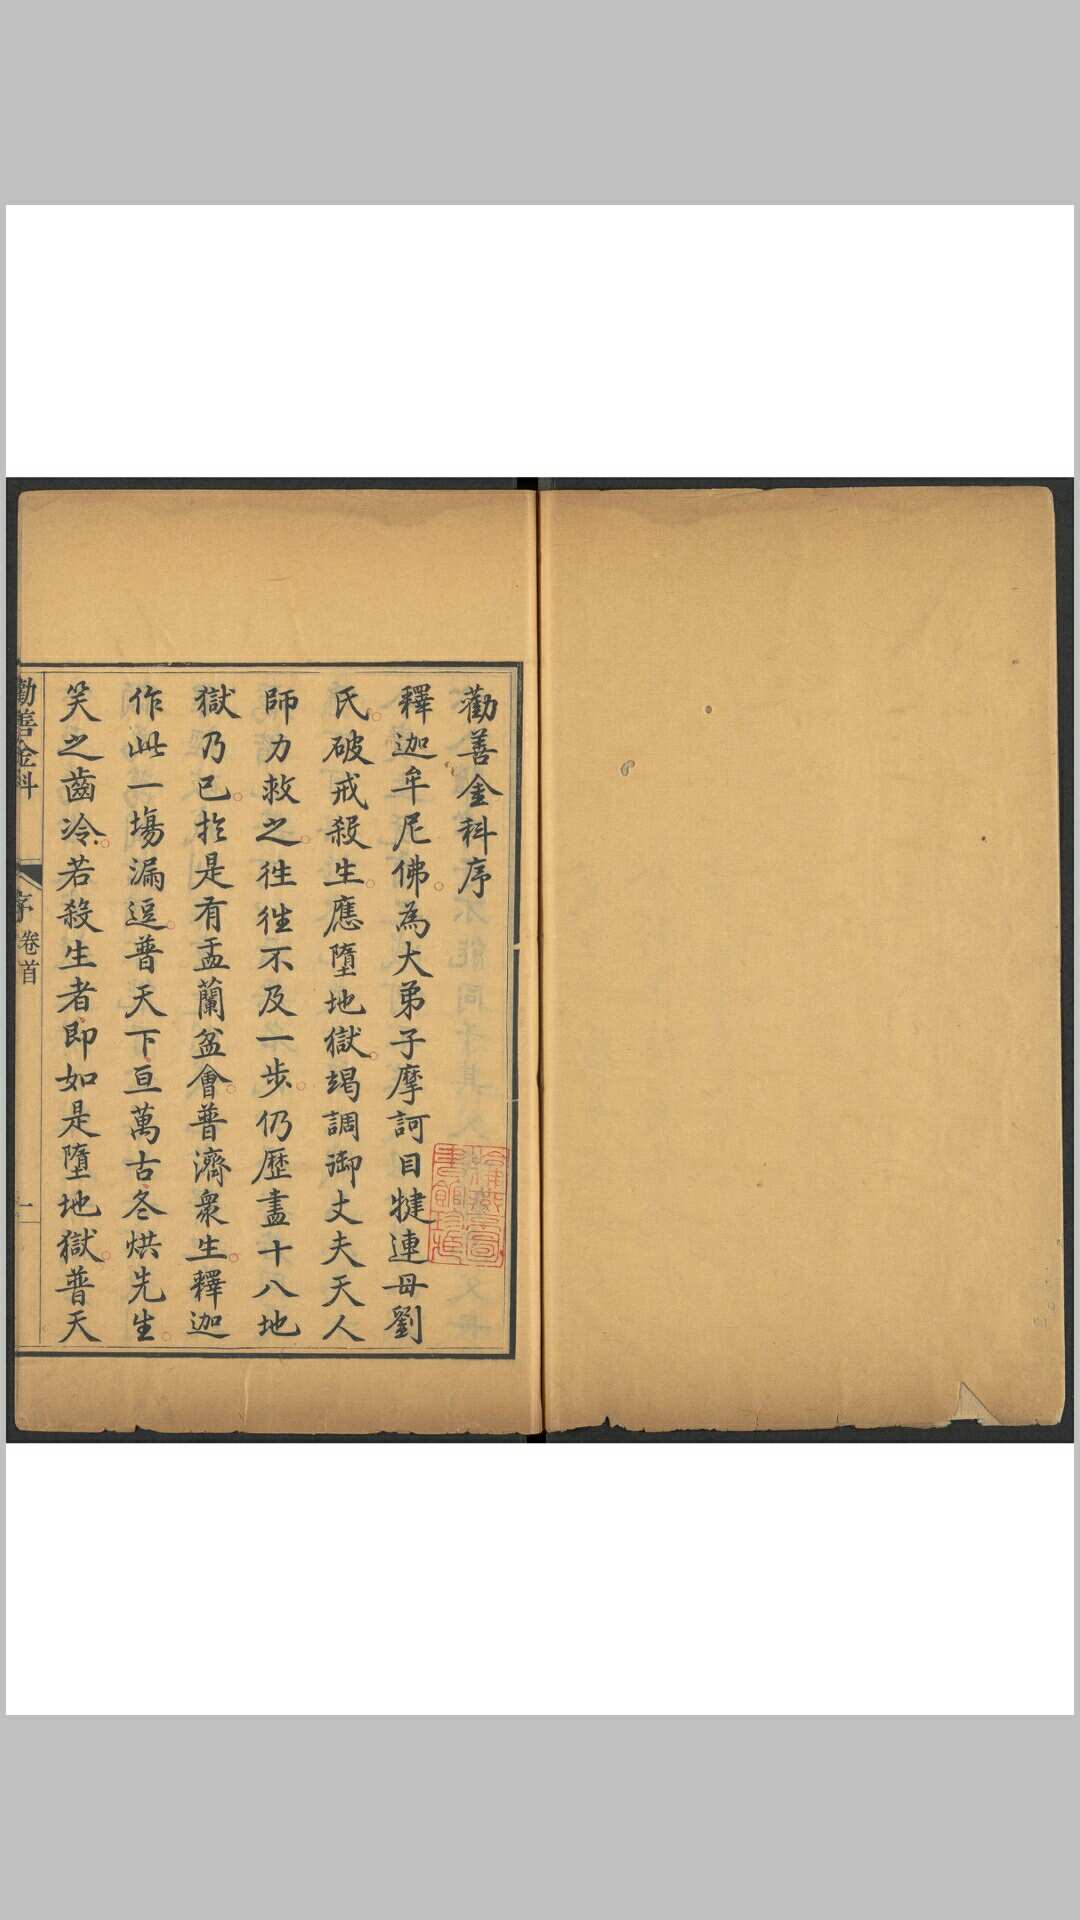 勸善金科序
釋迦牟尼佛為大弟子摩訶目犍連母劉
氏破戒殺生應墮地獄竭調御丈夫天人
師力救之徃徃不及一步仍歷盡十八地
獄乃已扵是有盂蘭盆會普濟衆生釋迦
作此一塲漏逗普天下亘萬古冬烘先生
笑之齒冷若殺生者即如是墮地獄普天
勸善金科
序
卷首
一